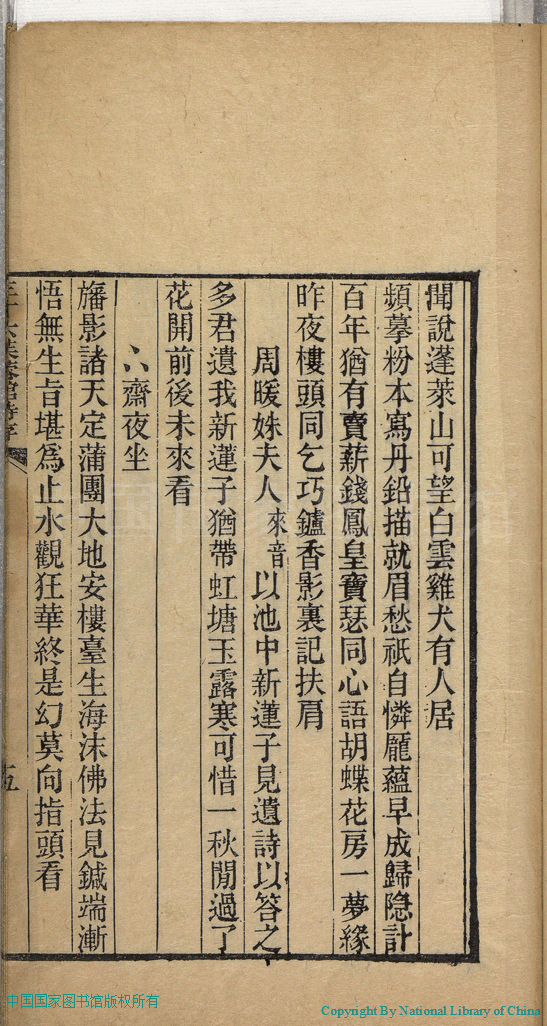 聞說蓬萊山可望白雲雞犬有人居
頻摹粉本寫丹鉛描就眉愁祇自憐龐蘊早成歸隐計
百年猶有賣薪錢鳳皇寶瑟同心語胡蝶花房一夢緣
昨夜樓頭同乞巧鑪香影裏記扶肩
周暖姝夫人來音以池中新蓮子見遺詩以答之
多君遺我新蓮子猶帶虹塘玉露寒可惜一秋閒過了
花開前後未來看
六齋夜坐
旛影諸天定蒲團大地安樓臺生海沫佛法見鍼端漸
悟無生旨堪爲止水觀狂華終是幻莫向指頭看
五
中国国家图书馆版权所有
Copyright By National Library of China